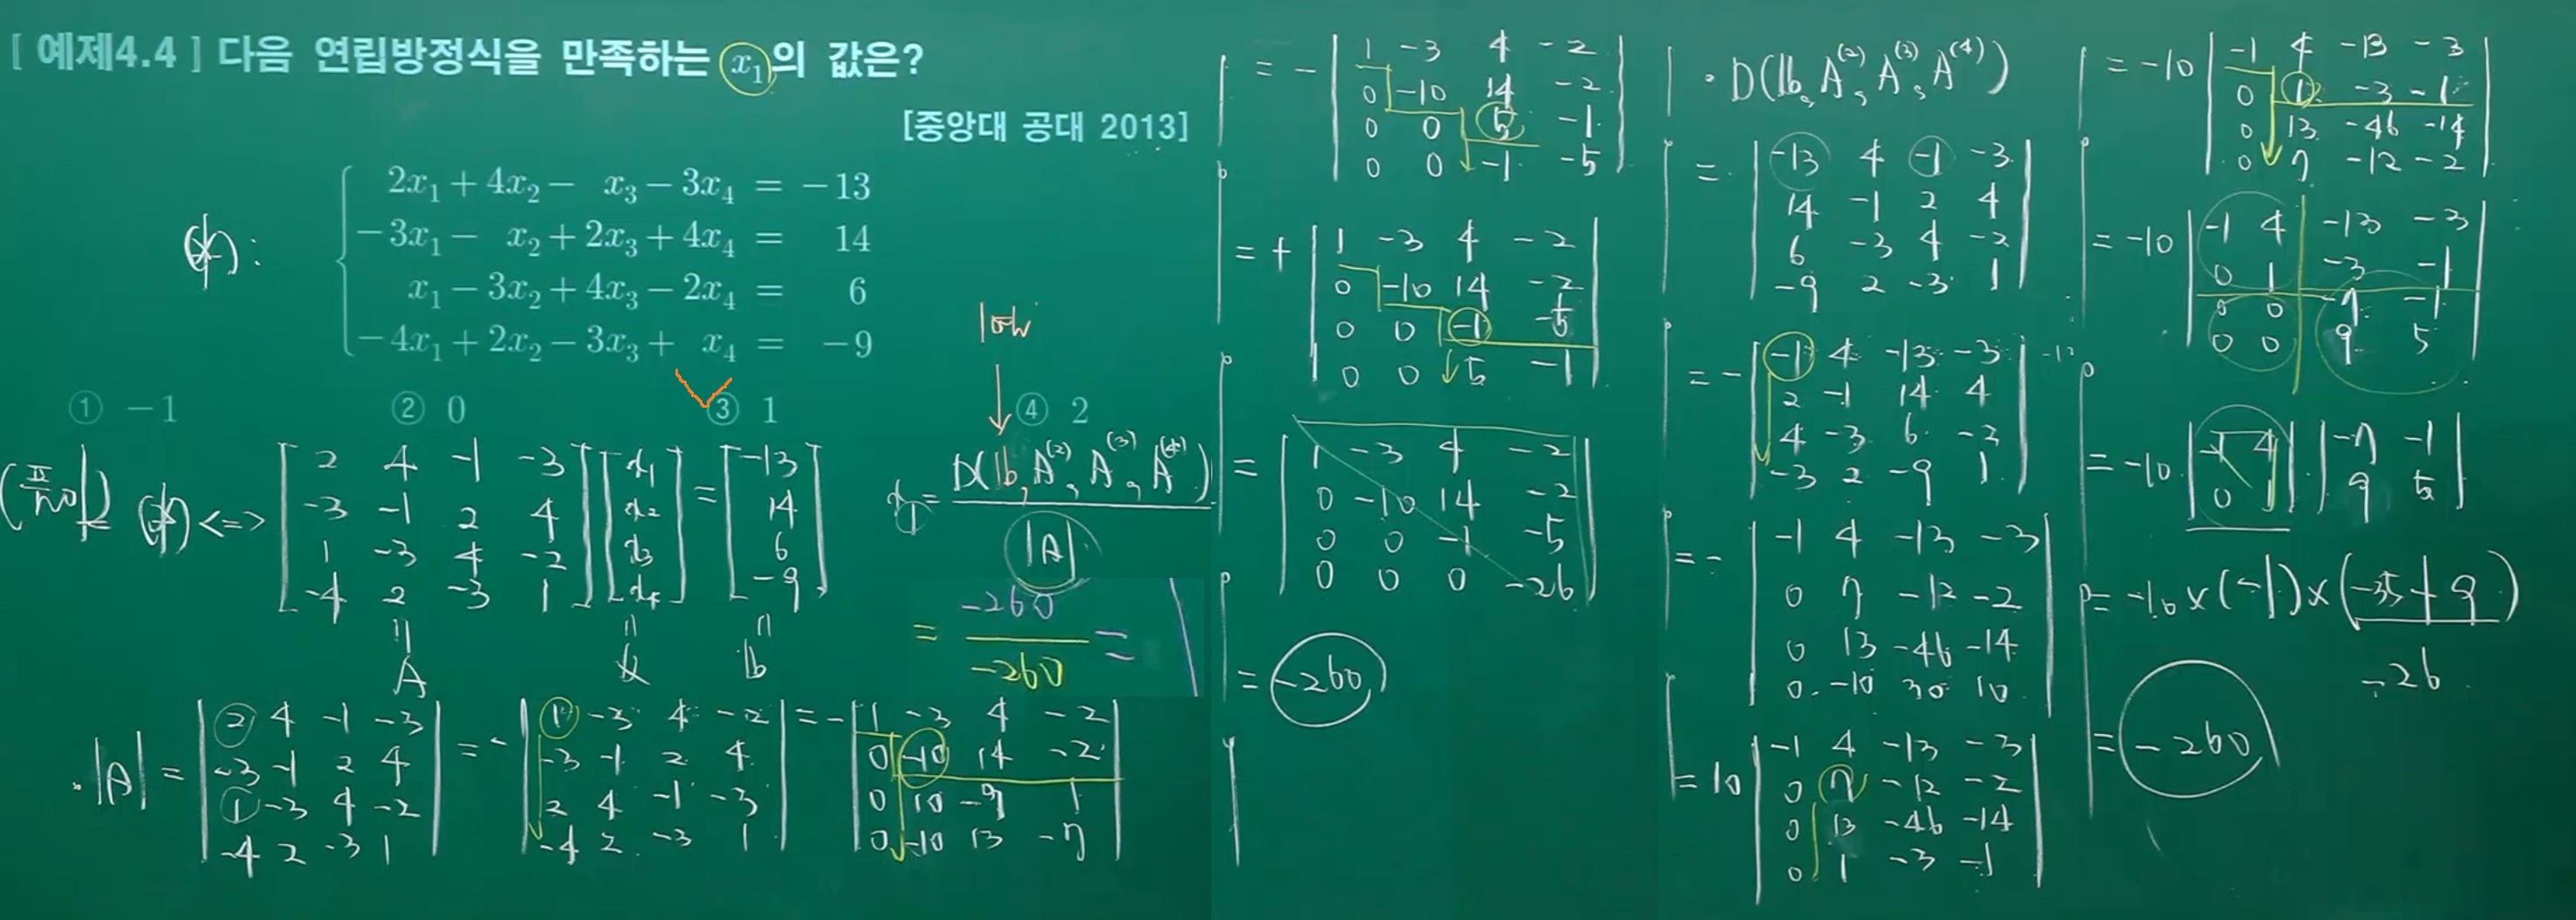 [ 예제4.4 ] 다음 연립방정식을 만족하는 x₁의 값은?
[중앙대 공대 2013]
2x₁ + 4x₂ − x₃ − 3x₄ = −13
−3x₁ − x₂ + 2x₃ + 4x₄ = 14
x₁ − 3x₂ + 4x₃ − 2x₄ = 6
−4x₁ + 2x₂ − 3x₃ + x₄ = −9
① −1 ② 0 ③ 1 ④ 2
(풀이) <=>
2 4 -1 -3 x₁ = -13
-3 -1 2 4 x₂ 14
1 -3 4 -2 x₃ 6
-4 2 -3 1 x₄ -9
A x b
x₁ = D(b, A⁽²⁾, A⁽³⁾, A⁽⁴⁾)
|A|
= -260 / -260 = 1
|A| =
2 4 -1 -3
-3 -1 2 4
1 -3 4 -2
-4 2 -3 1
= -
1 -3 4 -2
-3 -1 2 4
2 4 -1 -3
-4 2 -3 1
= -
1 -3 4 -2
0 -10 14 -2
0 10 -9 1
0 -10 13 -7
= -
1 -3 4 -2
0 -10 14 -2
0 0 5 -1
0 0 -1 -5
= +
1 -3 4 -2
0 -10 14 -2
0 0 -1 -5
0 0 5 -1
=
1 -3 4 -2
0 -10 14 -2
0 0 -1 -5
0 0 0 -26
= -260
· D(b, A⁽²⁾, A⁽³⁾, A⁽⁴⁾)
=
-13 4 -1 -3
14 -1 2 4
6 -3 4 -2
-9 2 -3 1
= -
-1 4 -13 -3
2 -1 14 4
4 -3 6 -2
-3 2 -9 1
= -
-1 4 -13 -3
0 7 -12 -2
0 13 -46 -14
0 -10 30 10
= 10
-1 4 -13 -3
0 7 -12 -2
0 13 -46 -14
0 1 -3 -1
= -10
-1 4 -13 -3
0 1 -3 -1
0 13 -46 -14
0 7 -12 -2
= -10
-1 4 -13 -3
0 1 -3 -1
0 0 -7 -1
0 0 9 5
= -10
-1 4 -7 -1
0 1 9 5
= -10 x (-1) x (-35+9)
-26
= -260